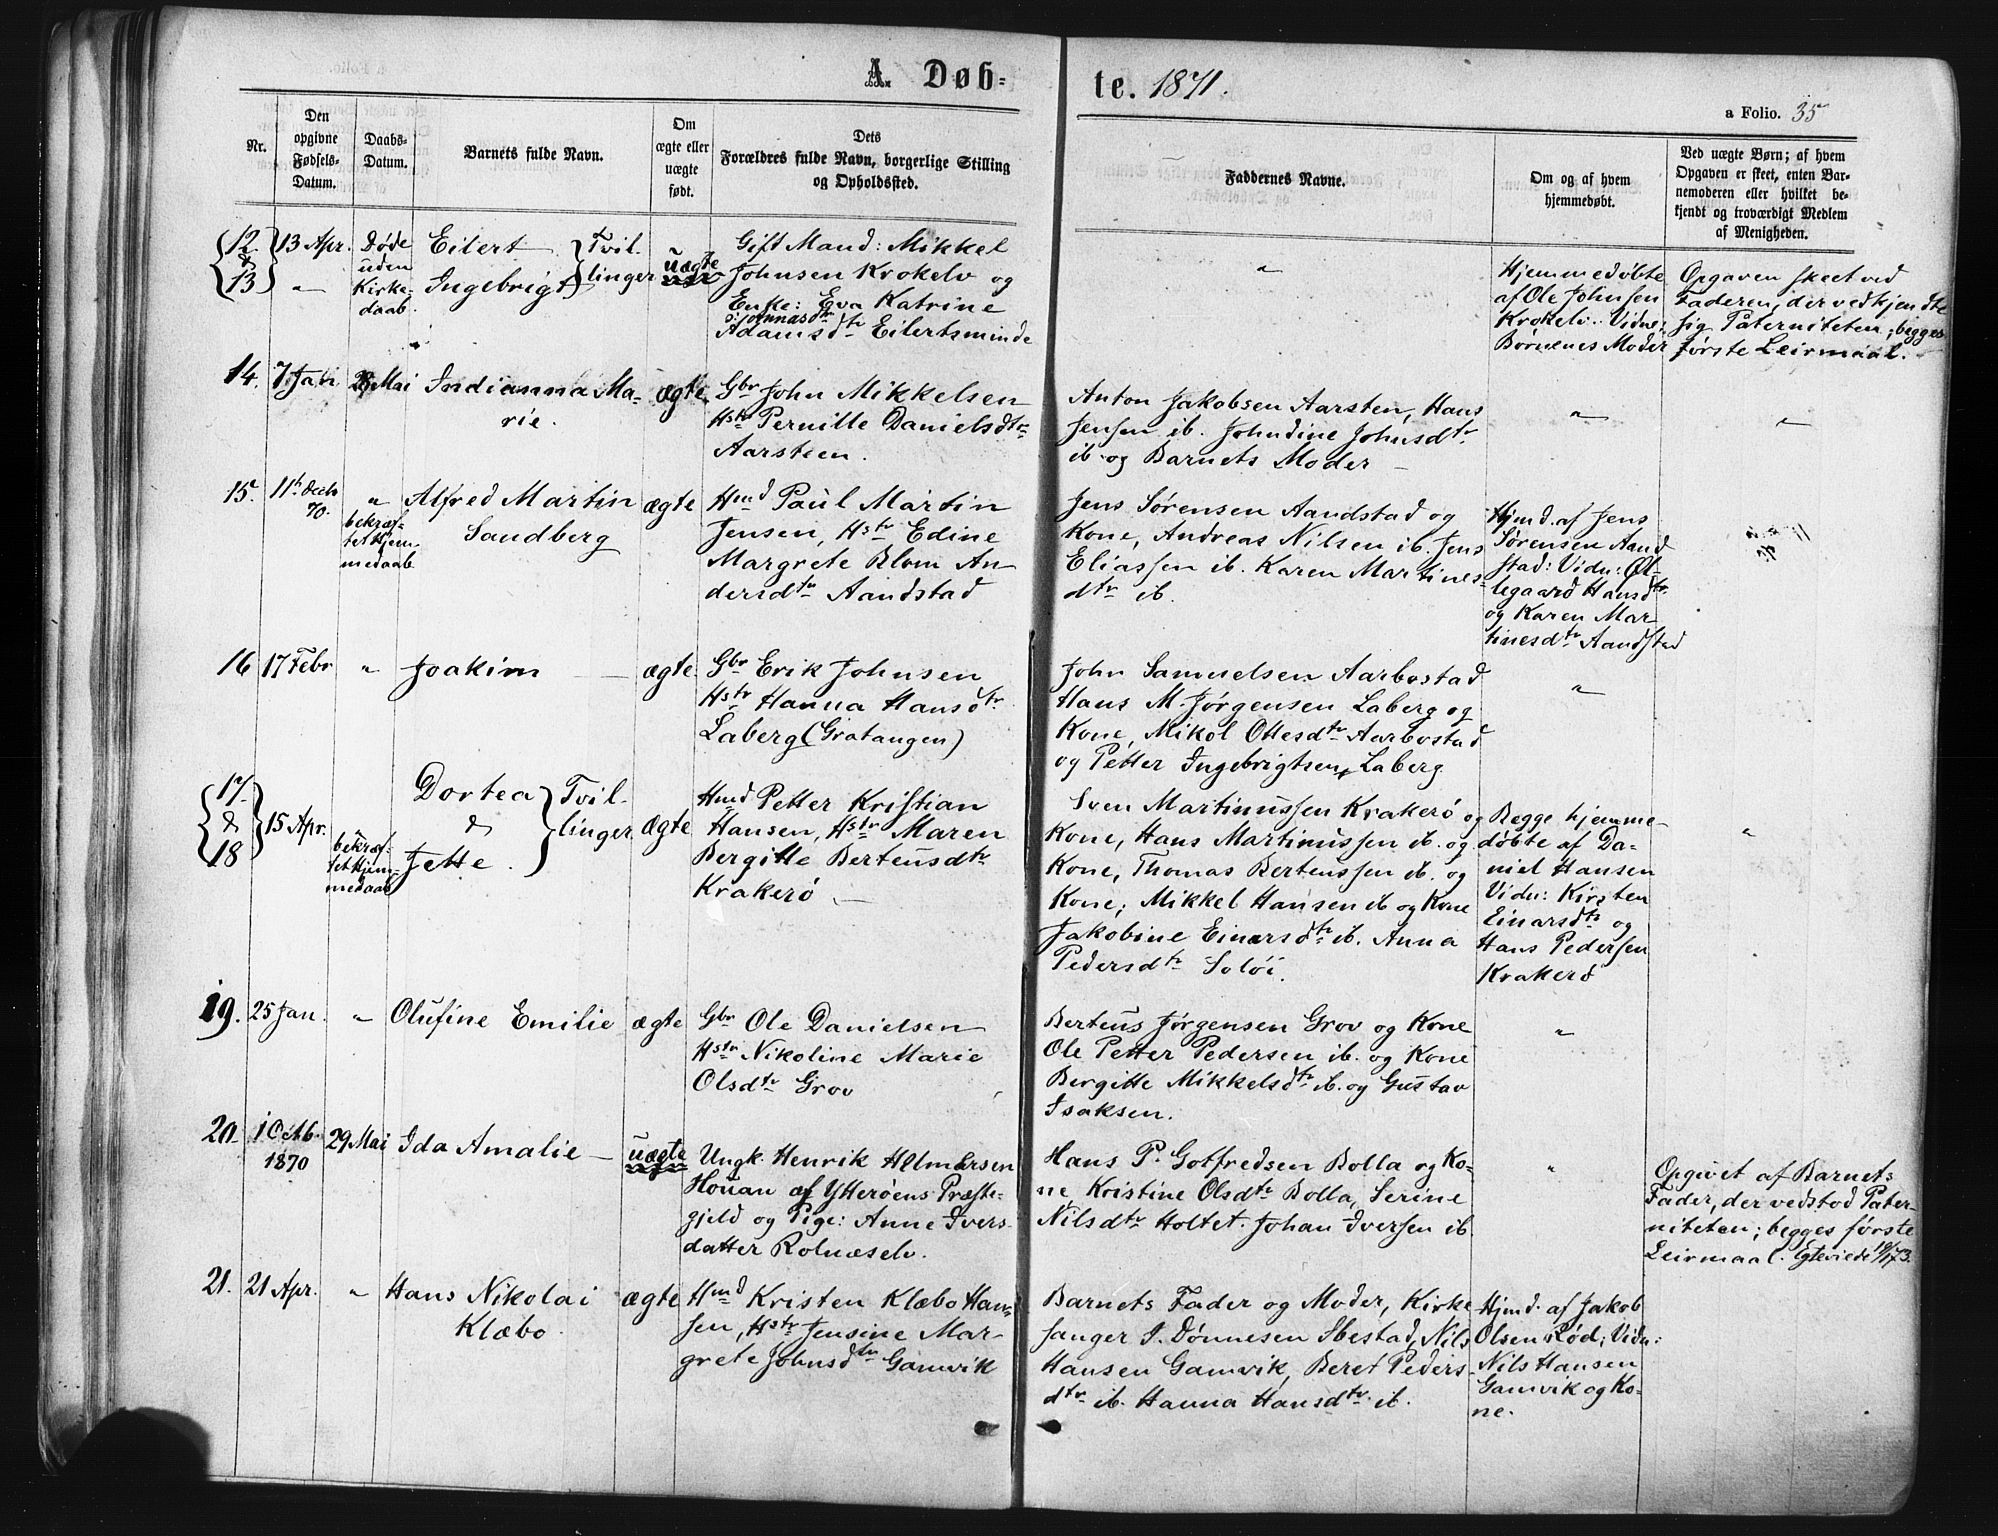 A Døb=
te. 1871.
a Folio. 35
Nr.
Den
opgivne
Fødsels-
Datum.
Daabs-
Datum.
Barnets fulde Navn.
Om
ægte eller
uægte
født.
Dets
Forældres fulde Navn, borgerlige Stilling
og Opholdssted.
Faddernes Navne.
Om og af hvem
hjemmedøbt.
Ved uægte Børn; af hvem
Opgaven er skeet, enten Bar-
nemoderen eller hvilket be-
kjendt og troværdigt Medlem
af Menigheden.
12
&
13
13 Apr.
"
Døde
uden
Kirke-
daab.
Eilert
Ingebrigt
Tvil-
linger
uægte
Gift Mand: Mikkel
Johnsen Krokelv og
Enke: Eva Katrine
Adamsdtr Eilertsminde
"
Hjemmedøbte
af Ole Johnsen
Krokelv. Vidne:
Børnenes Moder
Opgaven skeet ved
Faderen, der vedkjendte
sig Paterniteten; begges
første Leirmaal.
14.
7 Jan
28 Mai
Indianna Ma-
rie.
ægte
Gbr John Mikkelsen
Hstr Pernille Danielsdtr
Aarsteen.
Anton Jakobsen Aarsten, Hans
Jensen ib. Johndine Johnsdtr
ib. og Barnets Moder
"
"
15.
11te Decb
70.
"
bekræf-
tet Hjem-
medaab
Alfred Martin
Sandberg
ægte
Hmd Paul Martin
Jensen, Hstr Edine
Margrete Blom An-
dersdtr Aandstad
Jens Sørensen Aandstad og
Kone, Andreas Nilsen ib. Jens
Eliassen ib. Karen Martines-
dtr ib.
Hjmd. af Jens
Sørensen Aand
stad: Vidn: Ol-
legaard Hansdtr
og Karen Mar
tinesdtr Aandstad
16
17 Febr
"
Joakim
ægte
Gbr Erik Johnsen
Hstr Hanna Hansdtr
Laberg (Gratangen)
John Samuelsen Aarbostad
Hans M. Jørgensen Laberg og
Kone, Mikol Ottesdtr Aarbostad
og Petter Ingebrigtsen, Laberg
"
17.
&
18
15 Apr.
"
bekræf-
tet Hjem-
medaab
Dortea
&
Jette.
Tvil-
linger
ægte
Hmd Petter Kristian
Hansen, Hstr Maren
Bergitte Berteusdtr
Krakerø
Sven Martinussen Krakerø og
Kone, Hans Martinussen ib. og
Kone, Thomas Berteussen ib. og
Kone; Mikkel Hansen ib og Kone
Jakobine Einarsdtr ib. Anna
Pedersdtr Soløi.
Begge hjemme-
døbte af Da-
niel Hansen
Vidn: Kirsten
Einarsdtr og
Hans Pedersen
Krakerø
"
19.
25 Jan.
"
Olufine Emilie
ægte
Gbr Ole Danielsen
Hstr Nikoline Marie
Olsdtr Grov
Berteus Jørgensen Grov og Kone
Ole Petter Pedersen ib. og Kone
Bergitte Mikkelsdtr ib. og Gustav
Isaksen.
"
20.
1 Octb.
1870
29 Mai
Ida Amalie
uægte
Ungk. Henrik Helmersen
Houan af Ytterøens Præste-
gjeld og Pige: Anne Ivers-
datter Rolnæselv.
Hans P. Gotfredsen Bolla og Ko-
ne, Kristine Olsdtr Bolla, Serine
Nilsdtr Holtet. Johan Iversen ib.
"
Opgivet af Barnets
Fader, der vedstod Pater-
niteten; begges første
Leirmaal. Egteviede 73.
21.
21 Apr.
"
Hans Nikolai
Klæbo.
ægte
Hmd Kristen Klæbo Han-
sen, Hstr Jensine Mar-
grete Johnsdtr Gamvik
Barnets Fader og Moder, Kirke
sanger I. Dønnesen Ibestad, Nils
Hansen Gamvik, Beret Peders-
dtr ib. Hanna Hansdtr ib.
Hjmd. af Jakob
Olsen Rød; Vidn:
Nils Hansen
Gamvik og Ko-
ne.